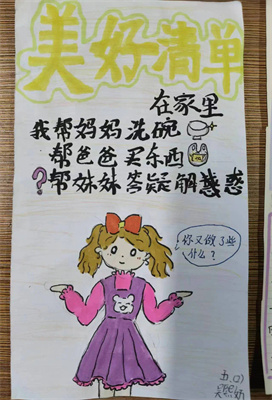 美好清单
在家里
我帮妈妈洗碗
帮爸爸买东西
?帮妹妹答疑解惑惑
你又做了些
什么?
五.(2)